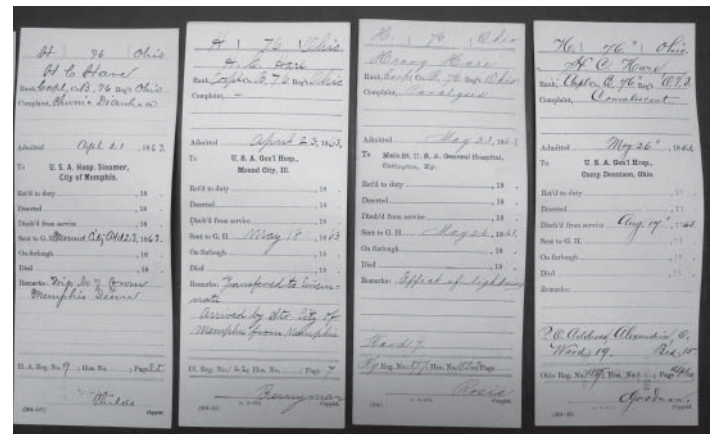 H | 76 | Ohio
H C Hare
Rank Corpl. Co. B, 76 Reg't Ohio
Complaint, Chronic Diarrhea
Admitted Apl 21, 1863.
To U. S. A. Hosp. Steamer,
City of Memphis.
Ret'd to duty , 18 .
Deserted , 18 .
Disch'd from service , 18 .
Sent to G. H. Mound City Apl 23, 1863.
On furlough , 18 .
Died , 18 .
Remarks: Trip No 7 from
Memphis Tenn
H. A. Reg. No. 9 ; Hos. No. ; Page 25
Childs
Copyist.
H | 76 | Ohio.
H. C. Hare
Rank Corpl. Co. B, 76 Reg't Ohio
Complaint, -
Admitted April 23, 1863.
To U. S. A. Gen'l Hosp.,
Mound City, Ill.
Ret'd to duty , 18 .
Deserted , 18 .
Disch'd from service , 18 .
Sent to G. H. May 18, 1863
On furlough , 18 .
Died , 18 .
Remarks: Transfered to Cincin-
nati
Arrived by Str. City of
Memphis from Memphis
Ill. Reg. No. ; Hos. No. ; Page 7
Berryman
Copyist.
H. | 76 | Ohio
Henry Hare
Rank Corp. Co. B, 76 Reg't Ohio
Complaint, Paralysis
Admitted May 23, 1863
To Main St. U. S. A. General Hospital,
Covington, Ky.
Ret'd to duty , 18 .
Deserted , 18 .
Disch'd from service , 18 .
Sent to G. H. May 26, 186
On furlough , 18 .
Died , 18 .
Remarks: Effect of lightning
Ward 7.
Ky Reg. No. ; Hos. No. ; Page
Rosie
Copyist.
H. | 76" | Ohio.
H C Hare
Rank, Corp Co B, 76" Reg't O.V.I.
Complaint, Convalescent.
Admitted May 26", 186
To U. S. A. Gen'l Hosp.,
Camp Dennison, Ohio.
Ret'd to duty , 18 .
Deserted , 18
Disch'd from service Aug. 17", 186
Sent to G. H. , 18
On furlough , 18
Died , 18
Remarks:
P.O. Address, Alexandria, O.
Ward 19. Bed 15
Ohio Reg. No. ; Hos. No. ; Page
Goodman.
Copyist.